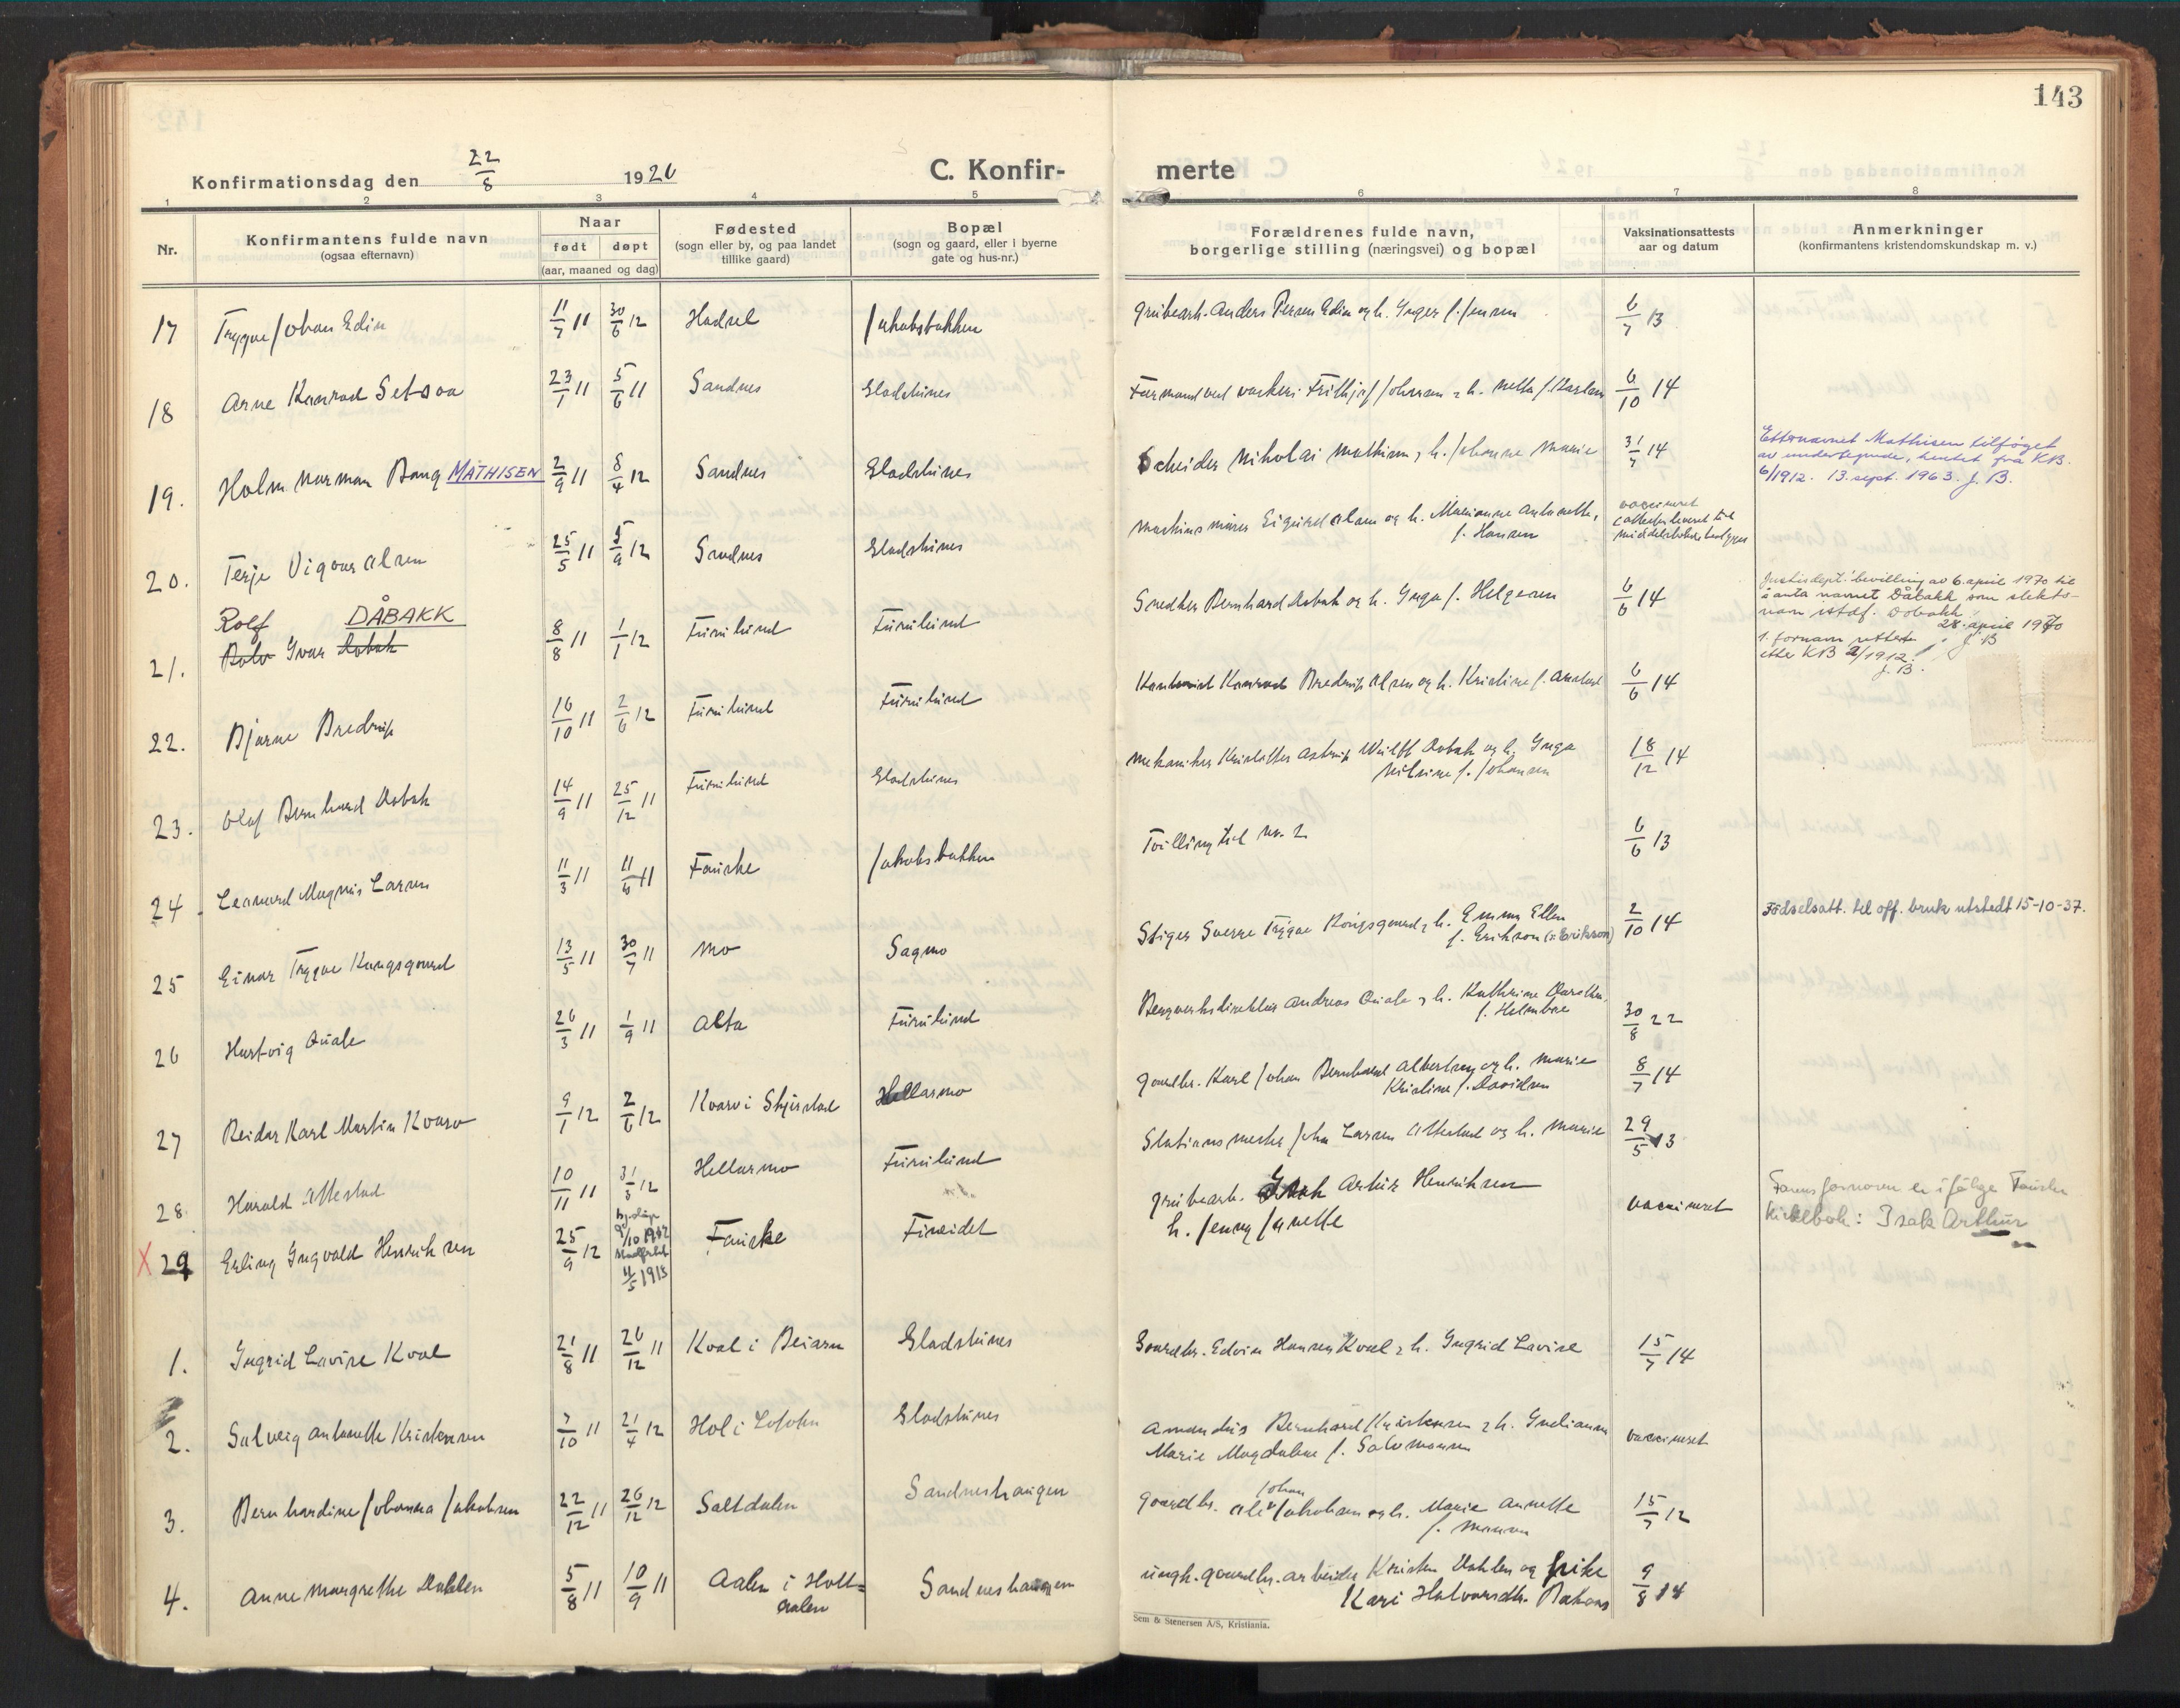 143
Konfirmationsdag den 22/8 1926
C. Konfir-
merte
1 2 3 4 5 6 7 8
Nr.
Konfirmantens fulde navn
(ogsaa efternavn)
Naar
født døpt
(aar, maaned og dag)
Fødested
(sogn eller by, og paa landet
tillike gaard)
Bopæl
(sogn og gaard, eller i byerne
gate og hus-nr.)
Forældrenes fulde navn,
borgerlige stilling (næringsvei) og bopæl
Vaksinationsattests
aar og datum
Anmerkninger
(konfirmantens kristendomskundskap m. v.)
17 Trygve Johan Edin 11/7 11 30/6 12 Hadsel Jakobsbakken Grubearb. Anders Persen Edin og h. Inger f. Jensen 6/7 13
18 Arne Konrad Setsaa 23/1 11 5/6 11 Sandnes Gladstunes Formand ved vaskeri Frithjof Johnsen & h. Netta f. 6/10 14
19. Holm Norman Bang MATHISEN 2/9 11 8/4 12 Sandnes Gladstunes Scheider Nikolai Mathisen, h. Johanne Marie 31/7 14
Etternavnet Mathisen tilføyet
av undertegnede, hentet fra KB.
6/1912. 13. sept. 1963. J. B.
20. Terje Vigvar Olsen 25/5 11 5/9 12 Sandnes Gladstunes Maskinsmører Sigurd Olsen og h. Marianne Antonette,
f. Hansen
vaccineret
middelskolebestyrer
21. Rolf DÅBAKK
Rolv Ivar Dobak 8/8 11 1/1 12 Furulund Furulund Snedker Bernhard Dobak og h. Inga f. Helgesen 6/6 14
Justisdept.' bevilling av 6. april 1970 til
å anta navnet Dåbakk som slekts-
navn istdf. Dobakk.
28. april 1970
J. B
1. fornavn rettet
etter KB 2/1912.
J. B.
22. Bjarne Bredrup 16/10 11 2/6 12 Furulund Furulund Konrad Bredrup Olsen og h. Kristine f. 6/6 14
23. Olaf Bernhard Dobak 14/9 11 25/12 11 Furulund Gladstunes Mekaniker Kristoffer Astrup Wulff Dobak og h. Inga
Nilsine f. Johansen 18/12 14
24. Leonard Magnus Larsen 11/3 11 11/6 11 Fauske Jakobsbakken Tvilling til nr. 2 6/6 13
25 Einar Trygve Kongsgaard 13/5 11 30/7 11 Mo Sagmo Stiger Sverre Trygve Kongsgaard, h. Emma Ellen
f. Erikson (ɔ: Eriksson) 2/10 14 Fødselsatt. til off. bruk utstedt 15-10-37.
26 Hartvig Quale 26/3 11 1/9 11 Alta Furulund Bergverksdirektør Andreas Quale & h. Kathrine Dorothea
f. Helmboe 30/8 22
27 Reidar Karl Martin Kvarv 9/1 12 2/6 12 Kvarv i Skjerstad Hellarmo Gaardbr. Karl Johan Bernhard Albertsen og h. Marie
Kristine f. Davidsen 8/7 14
28 Harald Attestad 10/11 11 31/3 12 Hellarmo Furulund Stationsmester John Larsen Attestad og h. Marie 29/5 13
X 29 Erling Ingvald Henriksen 25/9 12 hj.døpt
9/10 1912
stadfestet
4/5 1913 Fauske Fineidet Grubearb. Isak Artur Henriksen
h. Jenny Janette vaccineret
Farens fornavn er ifølge Fauske
kirkebok: Isak Arthur
1. Ingrid Lovise Kval 21/8 11 26/12 11 Kval i Beiarn Gladstunes Gaardbr. Edvin Hansen Kval & h. Ingrid Lovise 15/7 14
2. Solveig Antonette Kristensen 7/10 11 21/4 12 Hol i Lofoten Gladstunes Amandus Bernhard Kristensen & h. Gudianna
Marie Magdalene f. Salomonsen vaccineret
3. Bernhardine Johanna Jakobsen 22/12 11 26/12 12 Saltdalen Sandneshaugen Gaardbr. Ole Johan Jakobsen og h. Marie Annette
f. Monsen 15/7 12
4. Anne Margrethe Dahlen 5/8 11 10/9 11 Aalen i Holt=
aalen Sandneshaugen ungk. gaardbr.arbeider Kristen Dahlen og pike
Kari Halvorsdtr. Bakaas 9/8 14
Sem & Stenersen A/S, Kristiania.